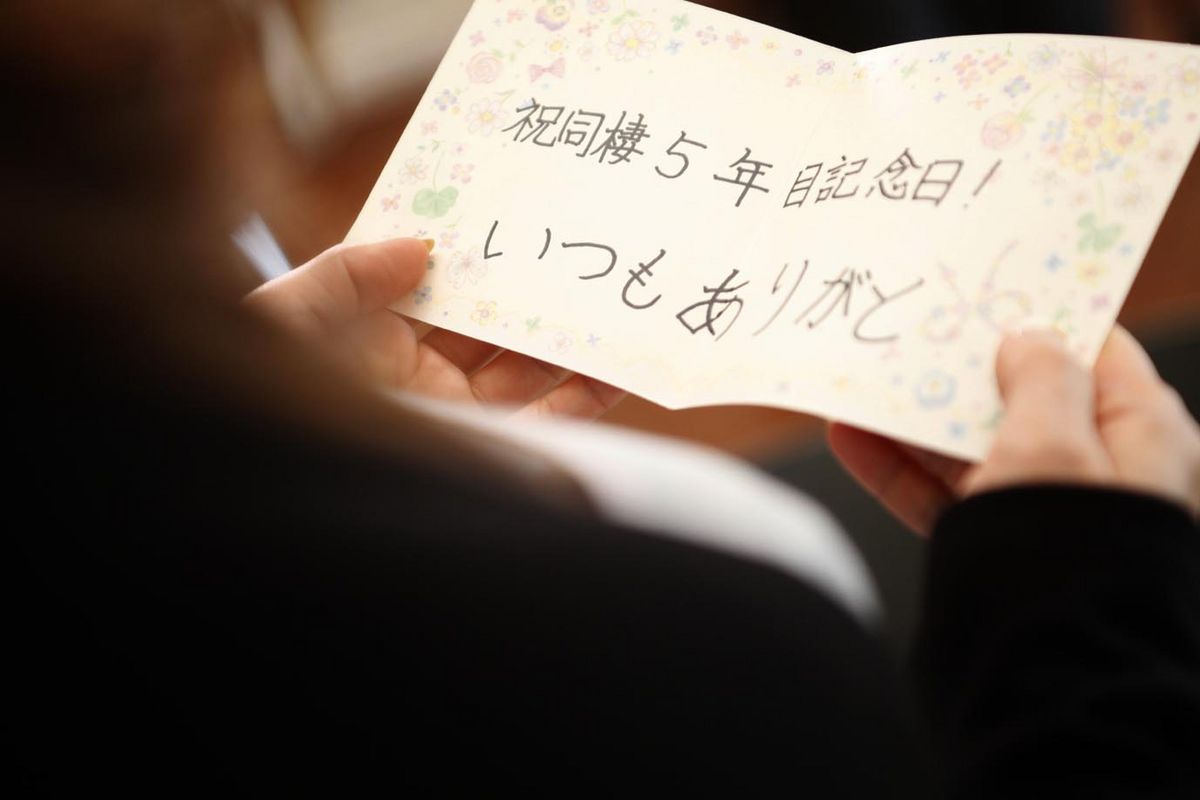 祝同棲5年目記念日!
いつもありがと